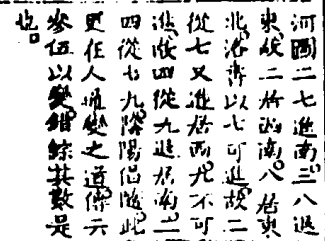 河圖二七進南三八退
東故二於南八居東
北洛書以七可進故二
從七又進居西九不可
進故四從九退居南二
四從七九陰陽侶隨此
更在人通變之道傳六
參伍以變錯綜其數是
也